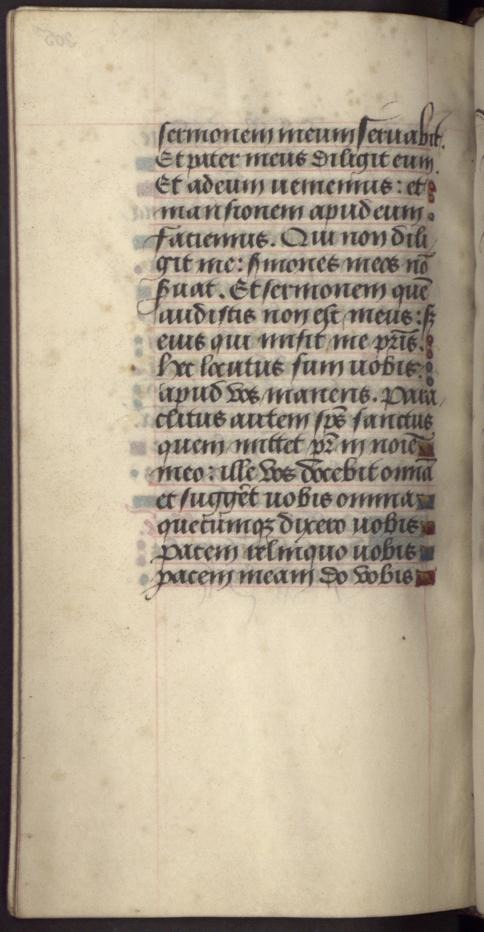 sermonem meum servabit.
Et pater meus diliget eum
Et ad eum veniemus: et
mansionem apud eum
faciemus. Qui non dili
git me: s̃mones meos nō
ẜuat. Et sermonem quē
audistis non est meus: sꝫ
eius qui misit me pr̃is.
Hec locutus sum vobis:
apud vos manens. Para
clitus autem sp̃s sanctus
quem mittet pr̃ in noīe
meo: ille vos docebit omnia
et suggẽt vobis omnia
quecūmqꝫ dixero vobis
pacem relinquo vobis
pacem meam do vobis